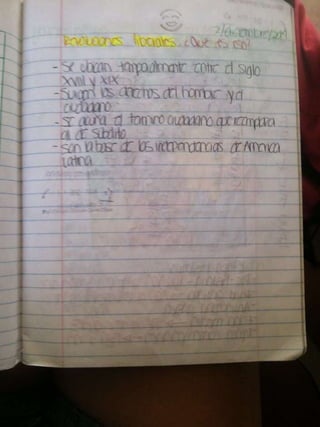 2/diciembre/2021
Revoluciones liberales. ¿Qué es eso?
- Se ubican temporalmente entre el siglo
XVIII y XIX
- Surgen los derechos del hombre y el
ciudadano
- Se acuña el termino ciudadano que reemplaza
al de súbdito
- Son la base de las independencias de America
Latina